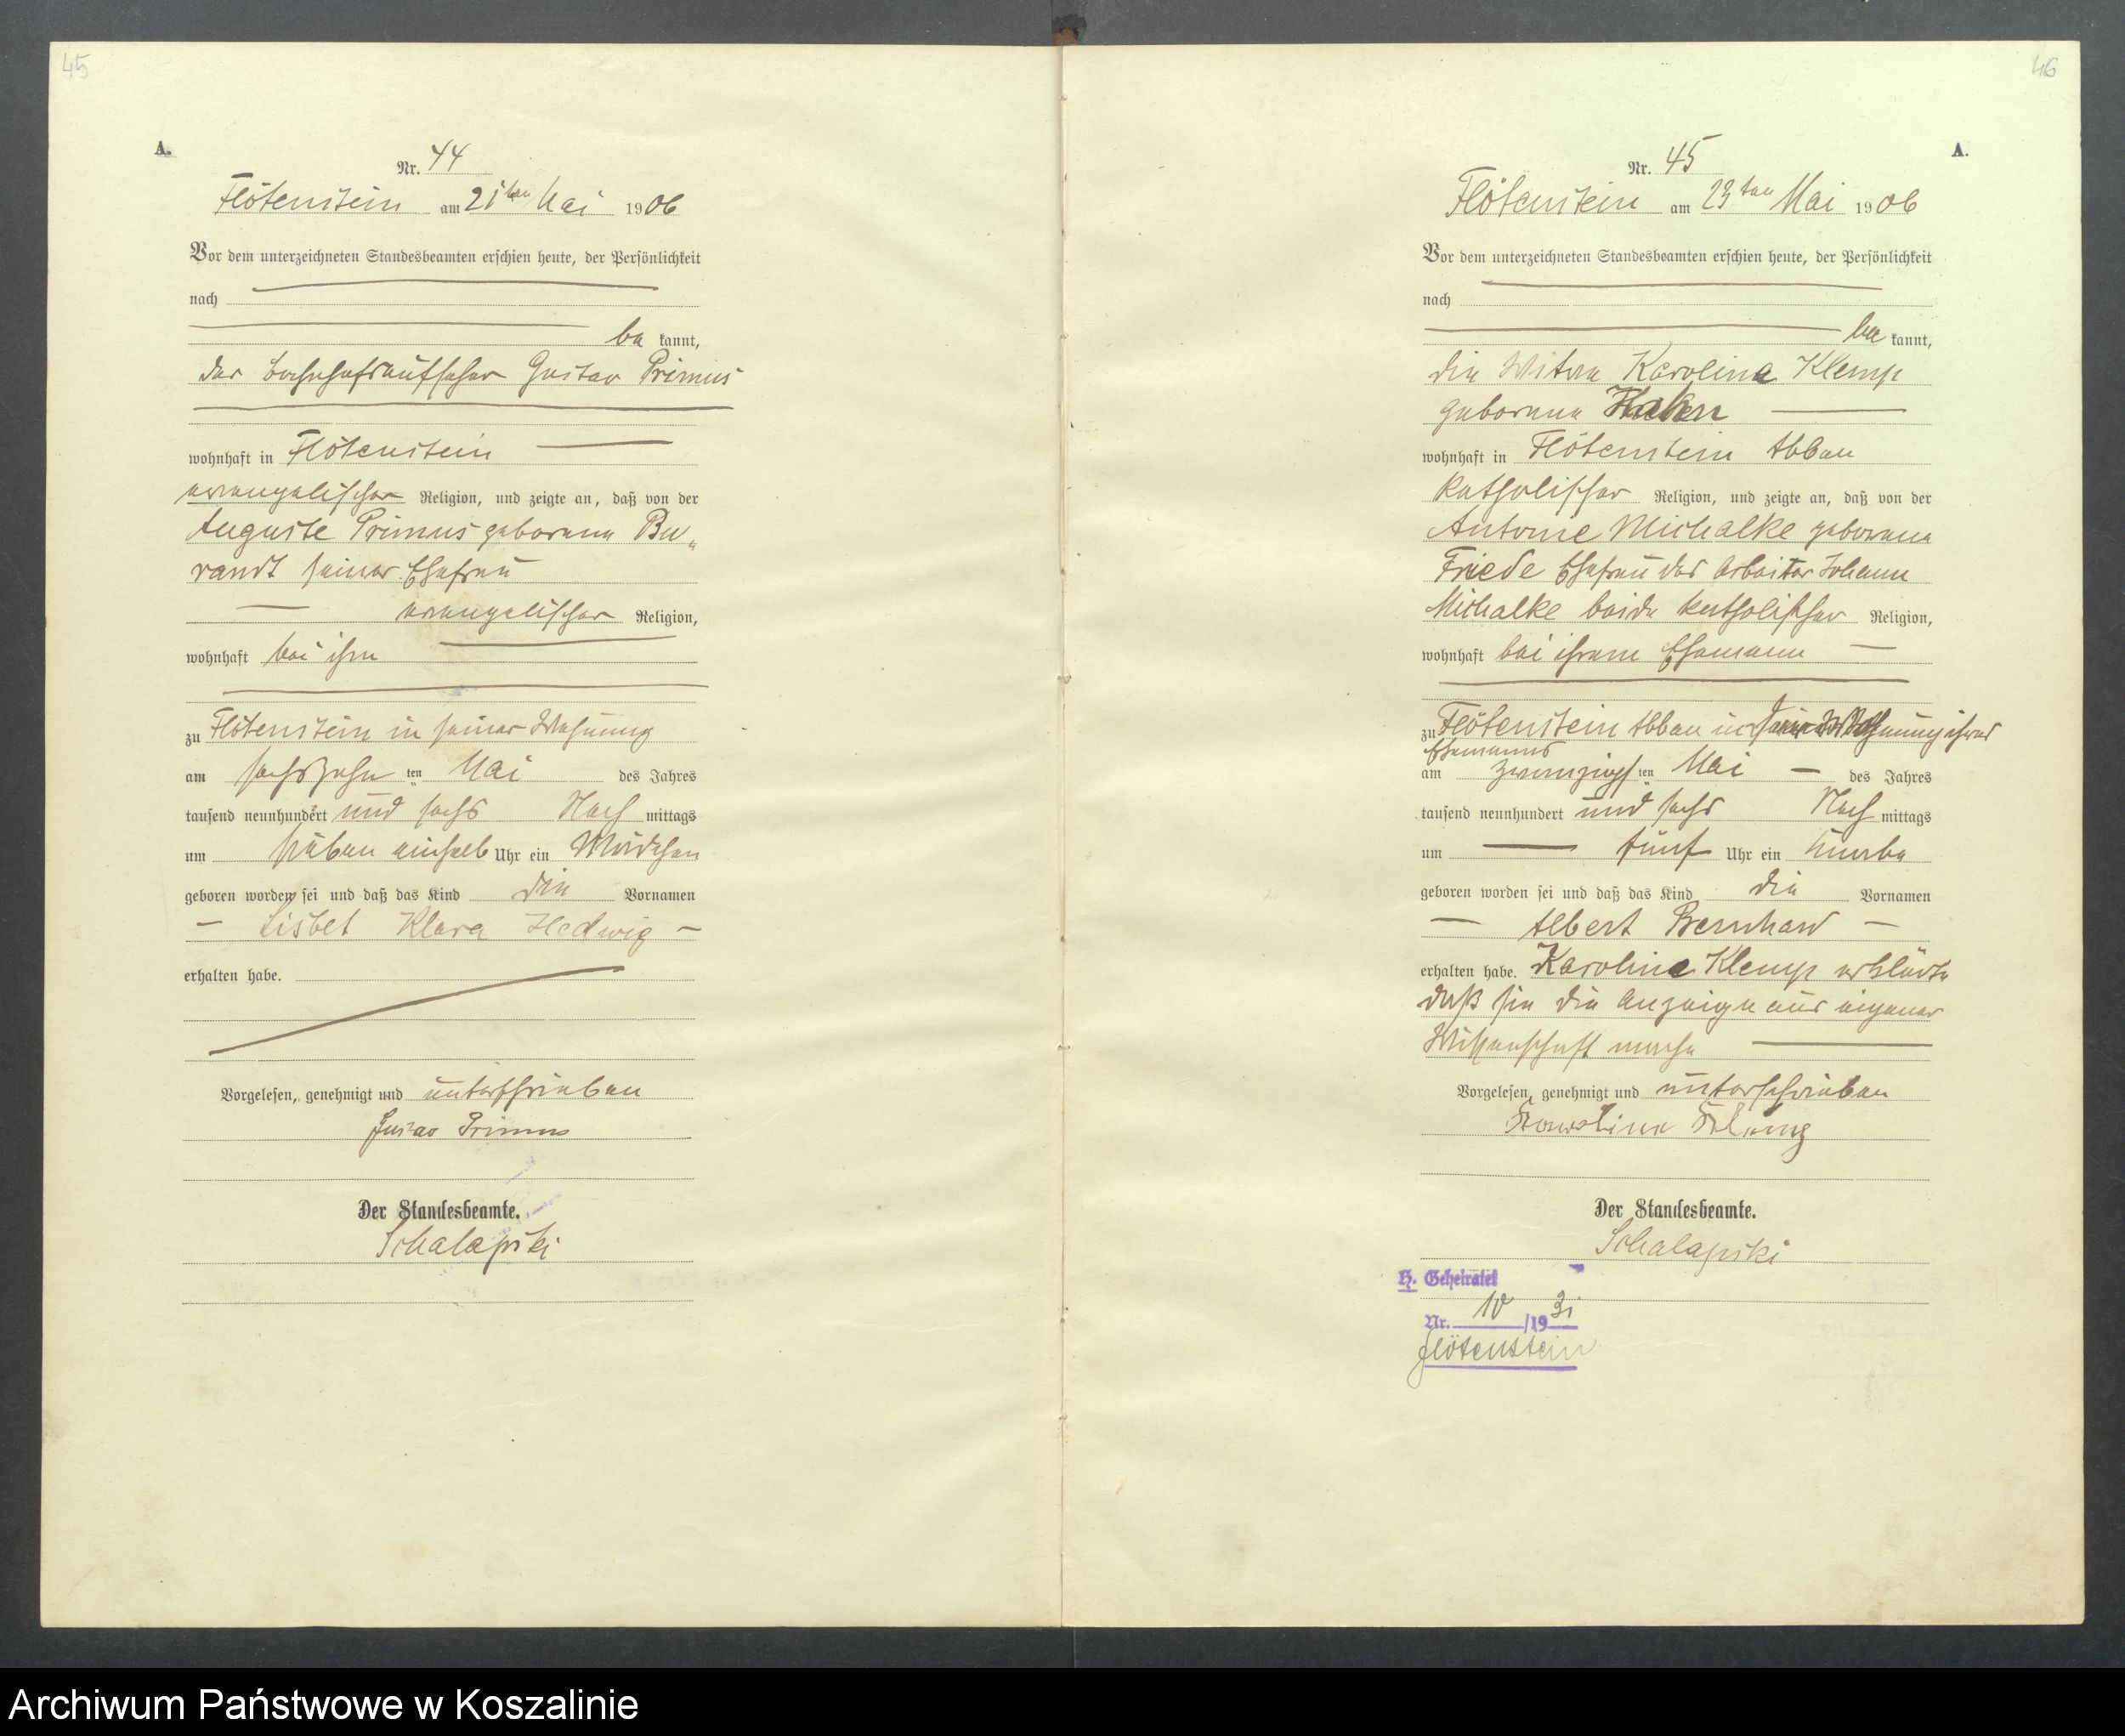 45
A.
Nr. 44
Flötenstein am 21ten Mai 1906
Vor dem unterzeichneten Standesbeamten erschien heute, der Persönlichkeit
nach
be kannt,
der Bahnhofsaufseher Gustav Primus
wohnhaft in Flötenstein
evangelischer Religion, und zeigte an, daß von der
Auguste Primus geborene Bu„
randt seiner Ehefrau
evangelischer Religion,
wohnhaft bei ihm
zu Flötenstein in seiner Wohnung
am sechszehn ten Mai des Jahres
tausend neunhundert und sechs Nach mittags
um sieben einhalb Uhr ein Mädchen
geboren worden sei und daß das Kind die Vornamen
Lisbet Klara Hedwig
erhalten habe.
Vorgelesen, genehmigt und unterschrieben
Gustav Primus
Der Standesbeamte.
Schalapski
46
A.
Nr. 45
Flötenstein am 23ten Mai 1906
Vor dem unterzeichneten Standesbeamten erschien heute, der Persönlichkeit
nach
be kannt,
die Witwe Karolina Klemp
geborene
wohnhaft in Flötenstein Abbau
katholischer Religion, und zeigte an, daß von der
Antonie Michalke geborene
Friede Ehefrau des Arbeiter Johann
Michalke beide katholischer Religion,
wohnhaft bei ihrem Ehemann
zu Flötenstein Abbau in Wohnung ihres
Ehemanns
am zwanzigs ten Mai des Jahres
tausend neunhundert und sechs Nach mittags
um fünf Uhr ein Knabe
geboren worden sei und daß das Kind die Vornamen
Albert Bernhard
erhalten habe. Karoline Klemp erklärte
daß sie die Anzeige aus eigener
Wissenschaft mache
Vorgelesen, genehmigt und unterschrieben
Karolina Klemp
Der Standesbeamte.
Schalapski
H. Geheiratet
Nr. 10 /1931
Flötenstein
Archiwum Państwowe w Koszalinie